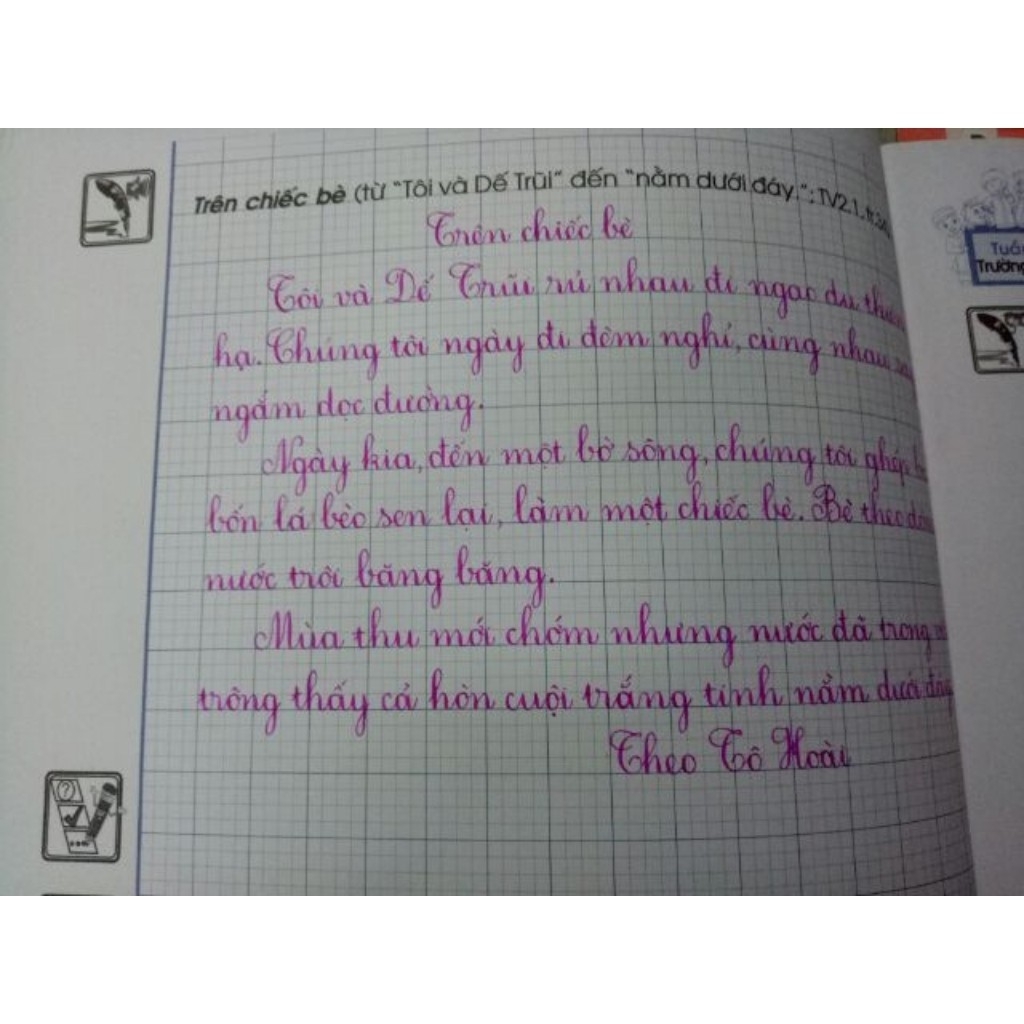 Trên chiếc bè (từ "Tôi và Dế Trũi" đến "nằm dưới đáy.": TV2.1, tr.34
Trên chiếc bè
Tôi và Dế Trũi rủ nhau đi ngao du thiên
hạ. Chúng tôi ngày đi đêm nghỉ, cùng nhau
ngắm dọc đường.
Ngày kia, đến một bờ sông, chúng tôi ghép
bốn lá bèo sen lại, làm một chiếc bè. Bè theo dòng
nước trôi băng băng.
Mùa thu mới chớm nhưng nước đã trong
trông thấy cả hòn cuội trắng tinh nằm dưới đáy
Theo Tô Hoài
Tuầ
Trường